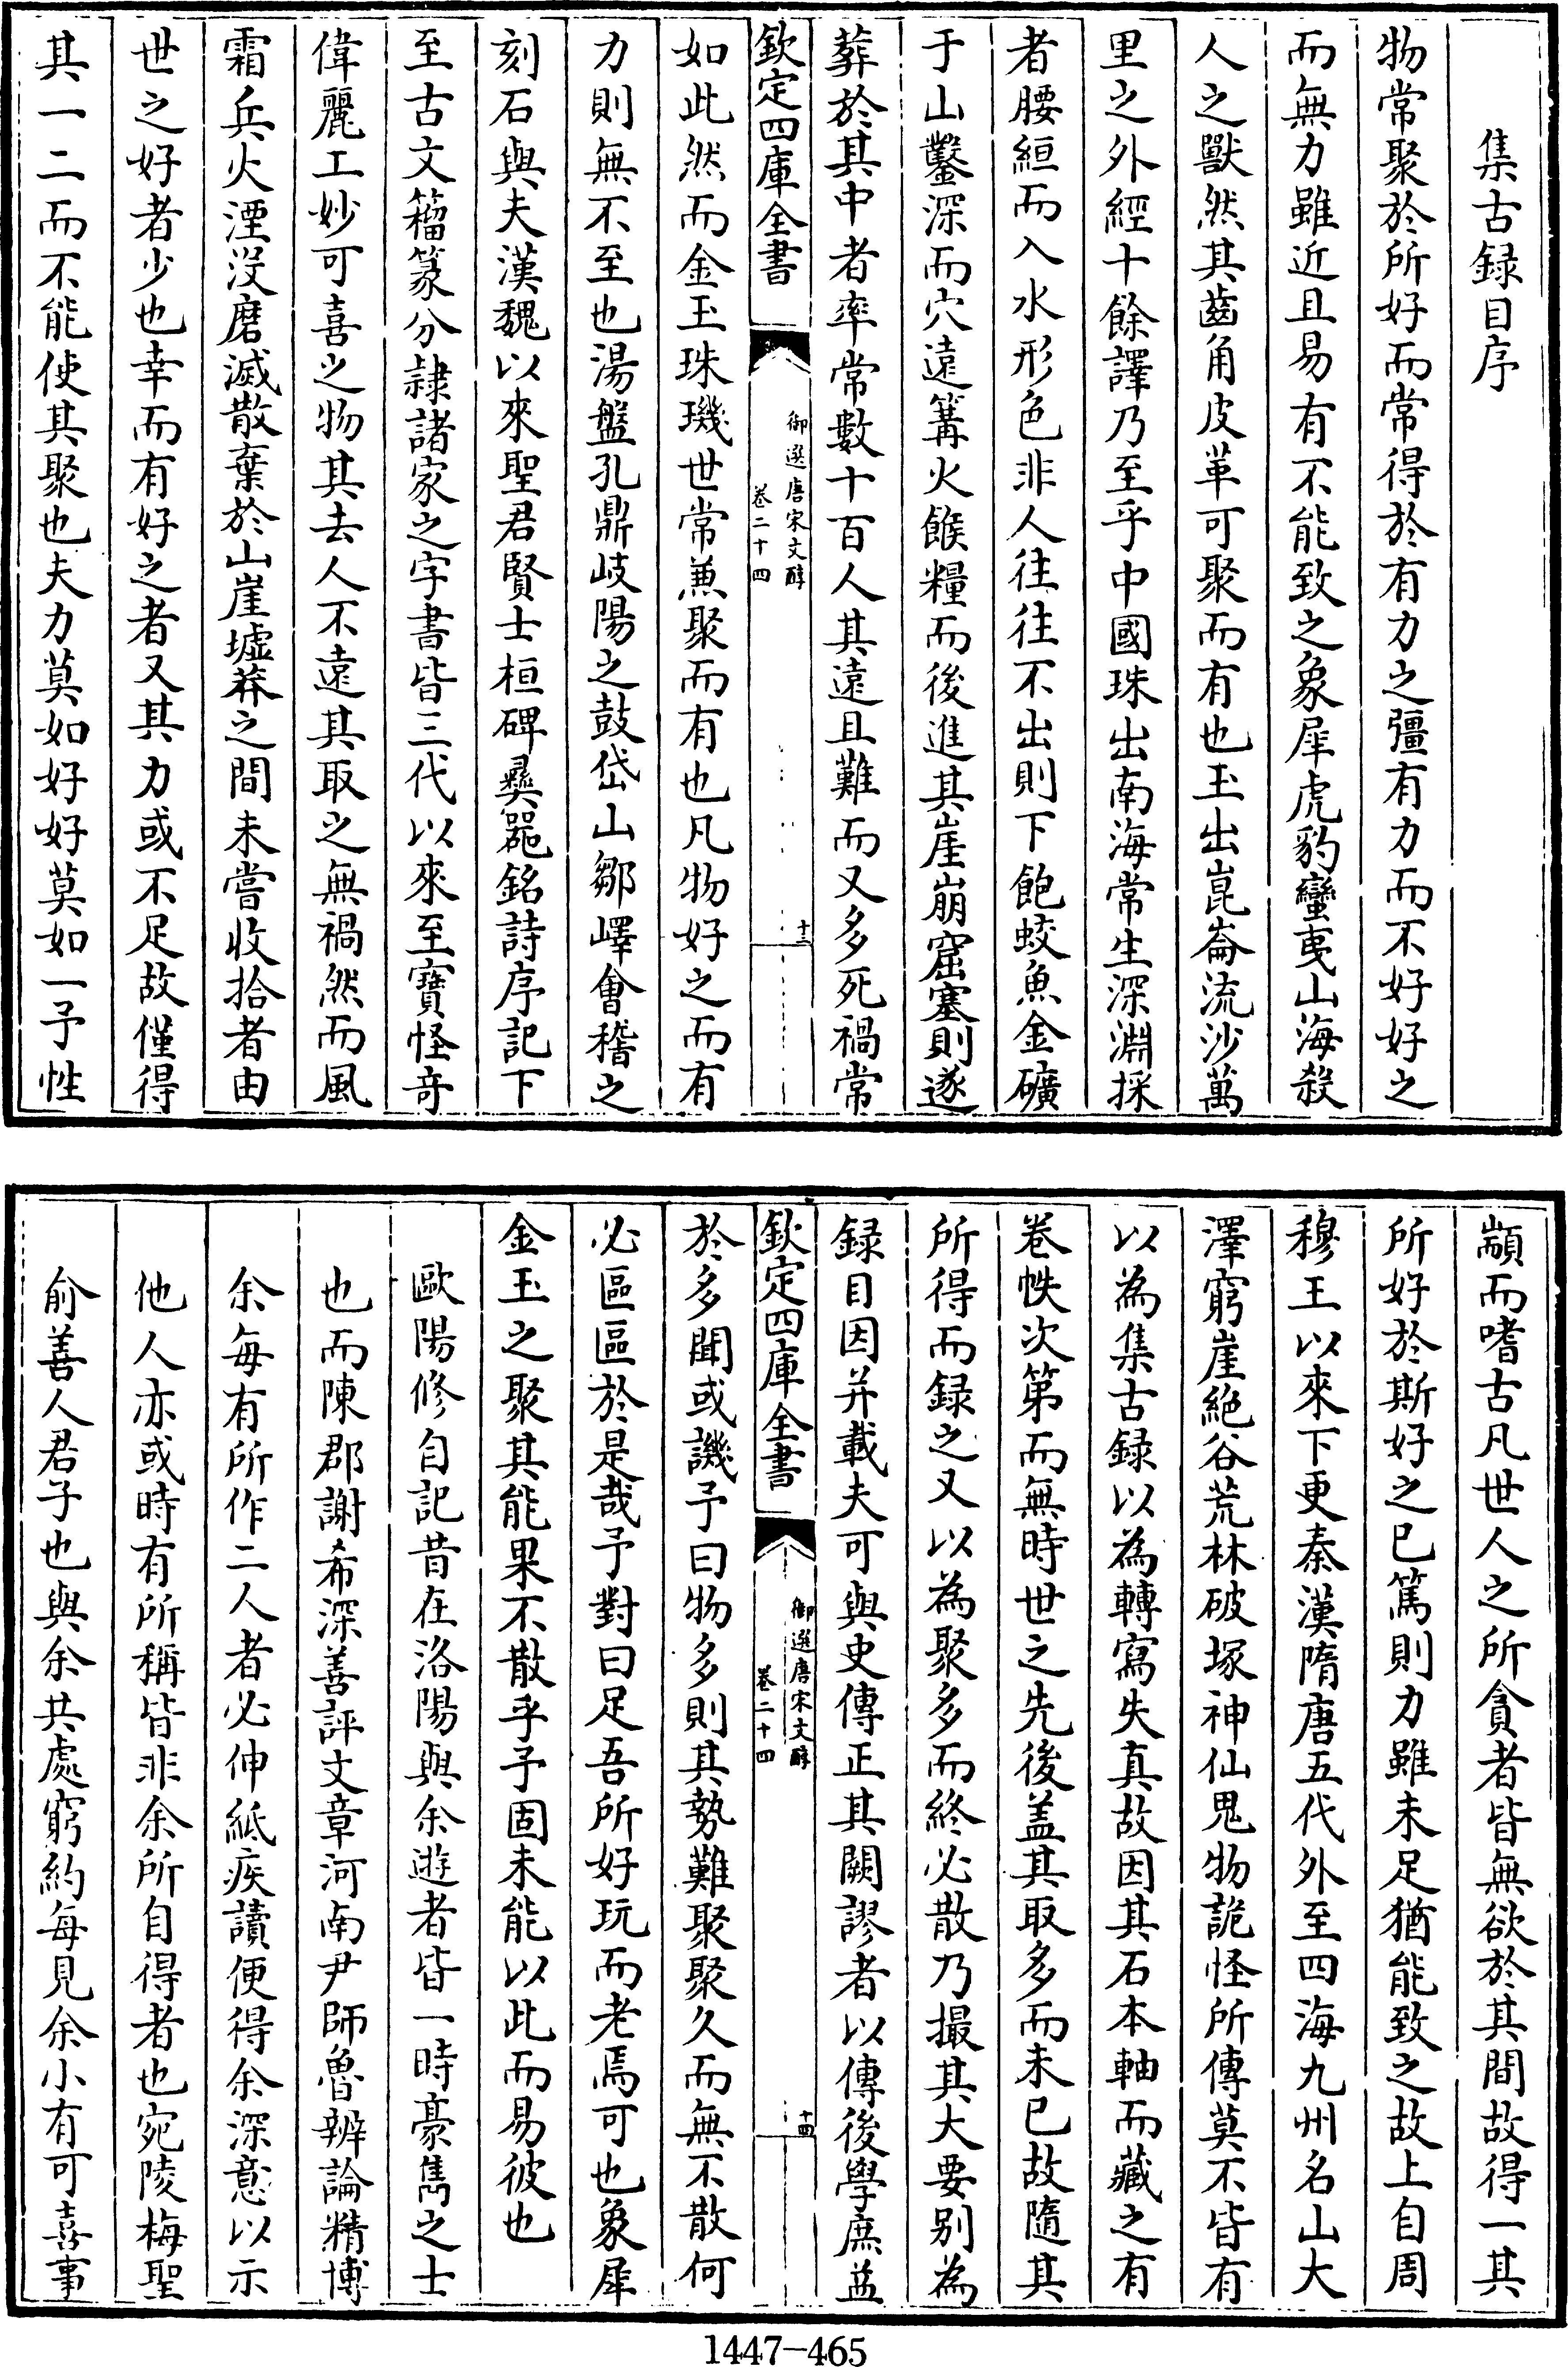 集古録目序
物常聚於所好而常得於有力之彊有力而不好好之
而無力雖近且易有不能致之象犀虎豹蠻夷山海殺
人之獸然其齒角皮革可聚而有也玉出崑崙流沙萬
里之外經十餘譯乃至乎中國珠出南海常生深淵採
者腰絙而入水形色非人往往不出則下飽蛟魚金礦
于山鑿深而穴遠篝火餱糧而後進其崖崩窟塞則遂
葬於其中者率常數十百人其遠且難而又多死禍常
欽定四庫全書
御選唐宋文醇
卷二十四
十三
如此然而金玉珠璣世常兼聚而有也凡物好之而有
力則無不至也湯盤孔鼎岐陽之鼓岱山鄒嶧會稽之
刻石與夫漢魏以來聖君賢士桓碑彞器銘詩序記下
至古文籀篆分隷諸家之字書皆三代以來至寶怪奇
偉麗工妙可喜之物其去人不遠其取之無禍然而風
霜兵火湮沒磨滅散棄於山崖墟莽之間未嘗收拾者由
世之好者少也幸而有好之者又其力或不足故僅得
其一二而不能使其聚也夫力莫如好好莫如一予性
顓而嗜古凡世人之所貪者皆無欲於其間故得一其
所好於斯好之已篤則力雖未足猶能致之故上自周
穆王以來下更秦漢隋唐五代外至四海九州名山大
澤窮崖絶谷荒林破塚神仙鬼物詭怪所傳莫不皆有
以為集古録以為轉寫失真故因其石本軸而藏之有
卷帙次第而無時世之先後盖其取多而未已故隨其
所得而録之又以為聚多而終必散乃撮其大要别為
録目因并載夫可與史傳正其闕謬者以傳後學庶益
欽定四庫全書
御選唐宋文醇
卷二十四
十四
於多聞或譏予曰物多則其勢難聚聚久而無不散何
必區區於是哉予對曰足吾所好玩而老焉可也象犀
金玉之聚其能果不散乎予固未能以此而易彼也
歐陽修自記昔在洛陽與余遊者皆一時豪雋之士
也而陳郡謝希深善評文章河南尹師魯辨論精博
余每有所作二人者必伸紙疾讀便得余深意以示
他人亦或時有所稱皆非余所自得者也宛陵梅聖
俞善人君子也與余共處窮約每見余小有可喜事
1447-465